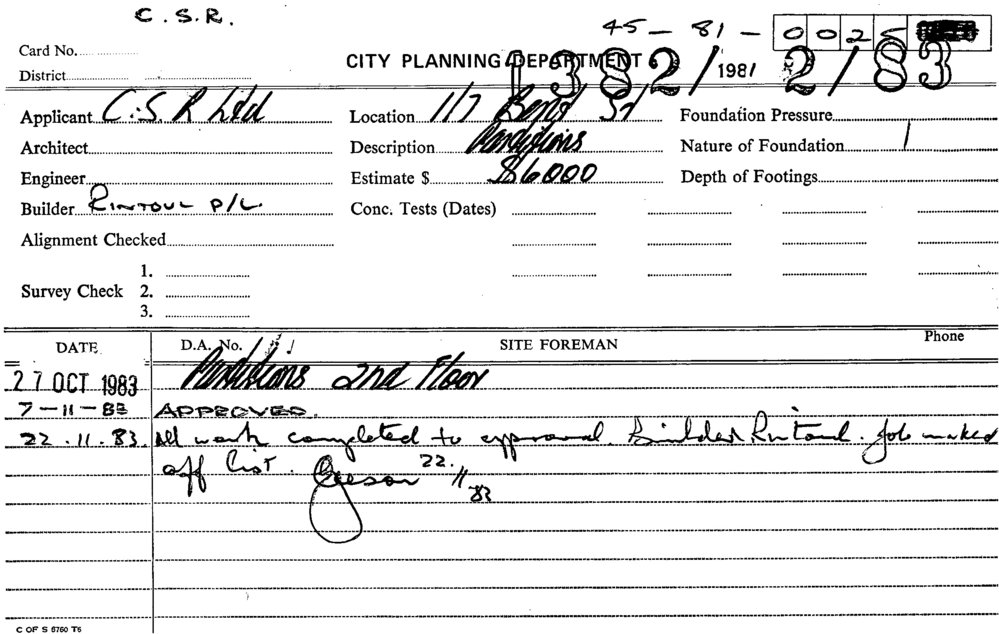 C.S.R.
45-81-0025
Card No.
CITY PLANNING DEPARTMENT
1382/1981 2/83
District
Applicant C.S.R Ltd Location 1/7 Bent St Foundation Pressure
Architect Description Partitions Nature of Foundation
Engineer Estimate $ $6000 Depth of Footings
Builder RINTOUL P/L. Conc. Tests (Dates)
Alignment Checked
1.
Survey Check 2.
3.
DATE D.A. No. SITE FOREMAN Phone
27 OCT 1983 Partitions 2nd Floor
7-11-83 APPROVED.
22.11.83. All work completed to approval. Builder Rintoul. Job marked
off list. 22.11.83
C OF S 6760 T6